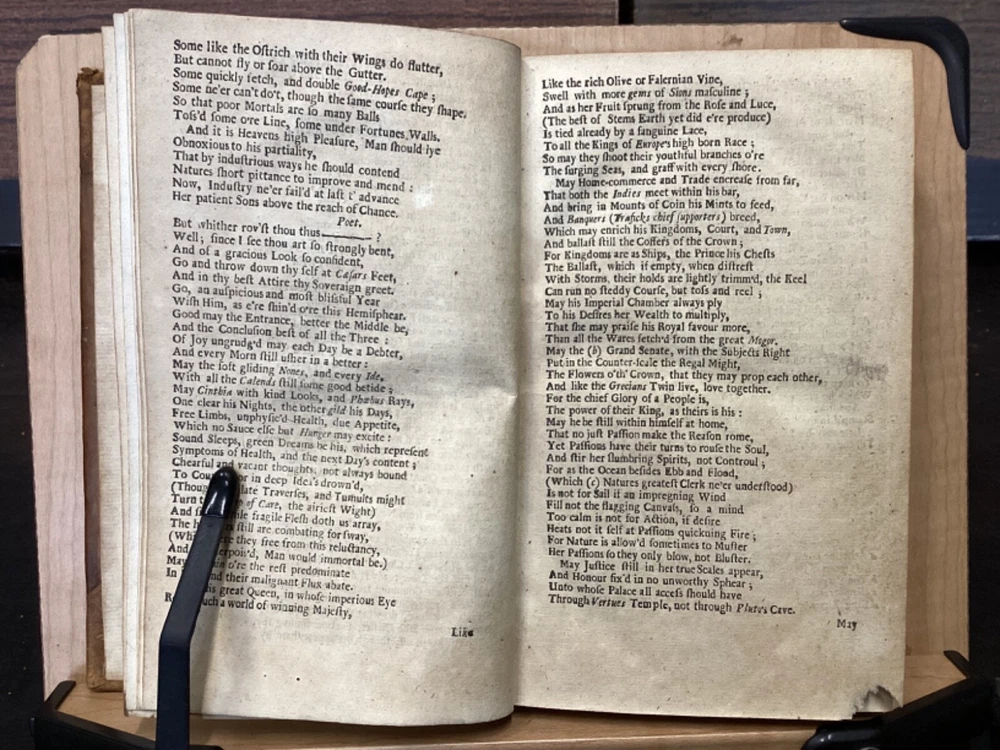 Some like the Oſtrich with their Wings do flutter,
But cannot fly or ſoar above the Gutter.
Some quickly fetch, and double Good-Hopes Cape ;
Some ne'er can't do't, though the ſame courſe they ſhape.
So that poor Mortals are ſo many Balls
Toſs'd ſome o're Line, ſome under Fortunes Walls.
And it is Heavens high Pleaſure, Man ſhould lye
Obnoxious to his partiality,
That by induſtrious ways he ſhould contend
Natures ſhort pittance to improve and mend :
Now, Induſtry ne'er fail'd at laſt t' advance
Her patient Sons above the reach of Chance.
Poet.
But whither rov'ſt thou thus ———— ?
Well ; ſince I ſee thou art ſo ſtrongly bent,
And of a gracious Look ſo confident,
Go and throw down thy ſelf at Cæſars Feet,
And in thy beſt Attire thy Soveraign greet.
Go, an auſpicious and moſt bliſsful Year
Wiſh Him, as e're ſhin'd o're this Hemiſphear.
Good may the Entrance, better the Middle be,
And the Concluſion beſt of all the Three :
Of Joy ungrudg'd may each Day be a Debter,
And every Morn ſtill uſher in a better :
May the ſoft gliding Nones, and every Ide,
With all the Calends ſtill ſome good betide ;
May Cinthia with kind Looks, and Phœbus Rays,
One clear his Nights, the other gild his Days,
Free Limbs, unphyſic'd Health, due Appetite,
Which no Sauce elſe but Hunger may excite :
Sound Sleeps, green Dreams be his, which repreſent
Symptoms of Health, and the next Day's content ;
Chearful and vacant thoughts, not always bound
To or in deep Idea's drown'd,
late Traverſes, and Tumults might
Turn of Care, the airieſt Wight)
And fragile Fleſh doth us array,
The ſtill are combating for ſway,
they free from this reluctancy,
And Man would immortal be.)
May o're the reſt predominate
In their malignant Flux abate.
great Queen, in whoſe imperious Eye
ſuch a world of winning Majeſty,
Like
Like the rich Olive or Falernian Vine,
Swell with more gems of Sions maſculine ;
And as her Fruit ſprung from the Roſe and Luce,
(The beſt of Stems Earth yet did e're produce)
Is tied already by a ſanguine Lace,
To all the Kings of Europe's high born Race ;
So may they ſhoot their youthful branches o're
The ſurging Seas, and graff with every ſhore.
May Home-commerce and Trade encreaſe from far,
That both the Indies meet within his bar,
And bring in Mounts of Coin his Mints to feed,
And Banquers (Traficks chief ſupporters) breed,
Which may enrich his Kingdoms, Court, and Town,
And ballaſt ſtill the Coffers of the Crown ;
For Kingdoms are as Ships, the Prince his Cheſts
The Ballaſt, which if empty, when diſtreſt
With Storms, their holds are lightly trimm'd, the Keel
Can run no ſteddy Courſe, but toſs and reel ;
May his Imperial Chamber always ply
To his Deſires her Wealth to multiply,
That ſhe may praiſe his Royal favour more,
Than all the Wares fetch'd from the great Mogor.
May the (b) Grand Senate, with the Subjects Right
Put in the Counter-ſcale the Regal Might,
The Flowers o'th' Crown, that they may prop each other,
And like the Grecians Twin live, love together.
For the chief Glory of a People is,
The power of their King, as theirs is his :
May he be ſtill within himſelf at home,
That no juſt Paſſion make the Reaſon rome,
Yet Paſſions have their turns to rouſe the Soul,
And ſtir her ſlumbring Spirits, not Controul ;
For as the Ocean beſides Ebb and Flood,
(Which (c) Natures greateſt Clerk ne'er underſtood)
Is not for Sail if an impregning Wind
Fill not the flagging Canvaſs, ſo a mind
Too calm is not for Action, if deſire
Heats not it ſelf at Paſſions quickning Fire ;
For Nature is allow'd ſometimes to Muſter
Her Paſſions ſo they only blow, not Bluſter.
May Juſtice ſtill in her true Scales appear,
And Honour fix'd in no unworthy Sphear ;
Unto whoſe Palace all acceſs ſhould have
Through Vertues Temple, not through Pluto's Cave.
May